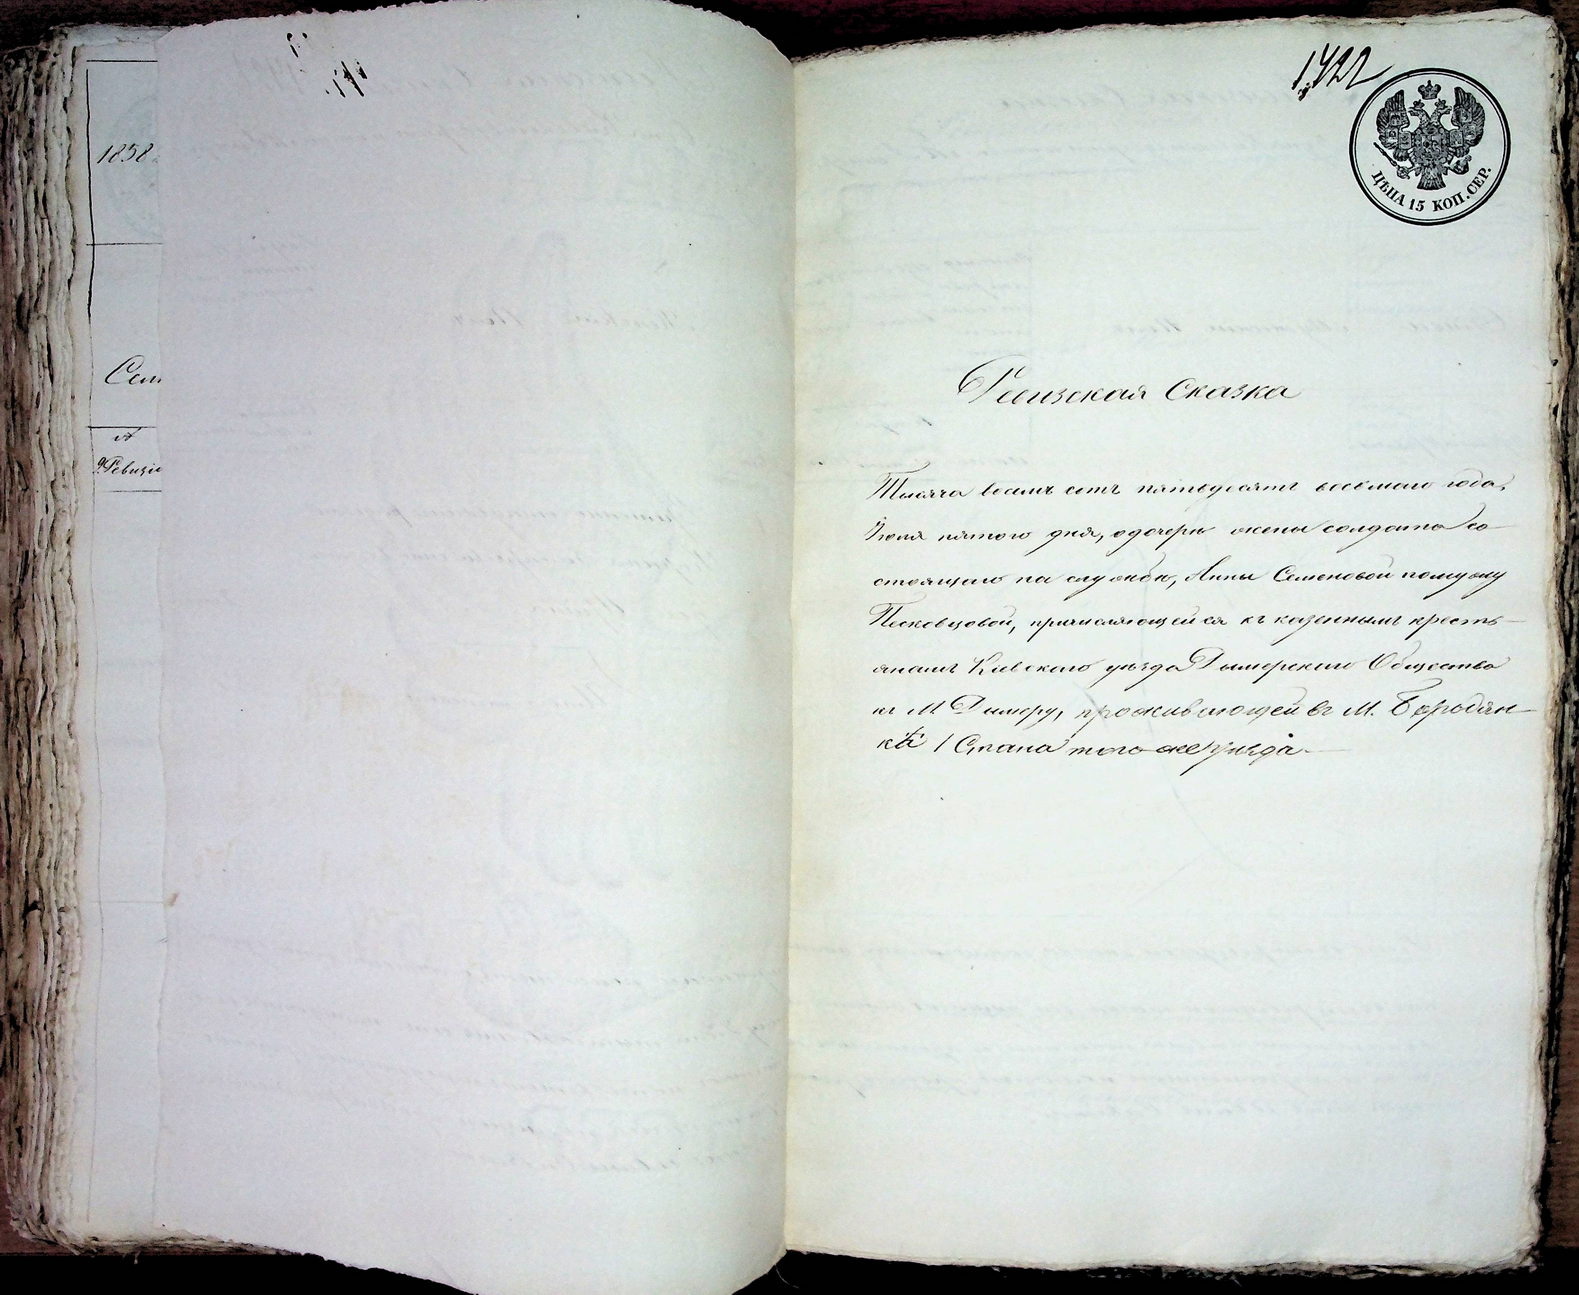 1858
Сем
и
9 Ревизіи
1,422
ЦѢНА 15 КОП. СЕР.
Ревизская Сказка
Тысяча восемь сотъ пятьдесятъ восьмаго года,
Іюля пятого дня, о дочери жены солдата со-
стоящаго на службѣ, Анны Семеновой по мужу
Песковцовой, причисляющейся къ казеннымъ кресть-
янамъ Кіевского уѣзда Дымерского Общества
къ М Дымеру, проживающей въ М. Бородян-
кѣ 1 Стана того-же уѣзда.